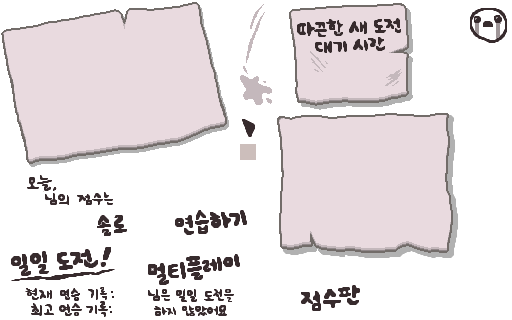 따끈한 새 도전
대기 시간
오늘,
님의 점수는
솔로
연습하기
일일 도전!
멀티플레이
현재 연승 기록:
최고 연승 기록:
님은 일일 도전을
하지 않았어요
점수판